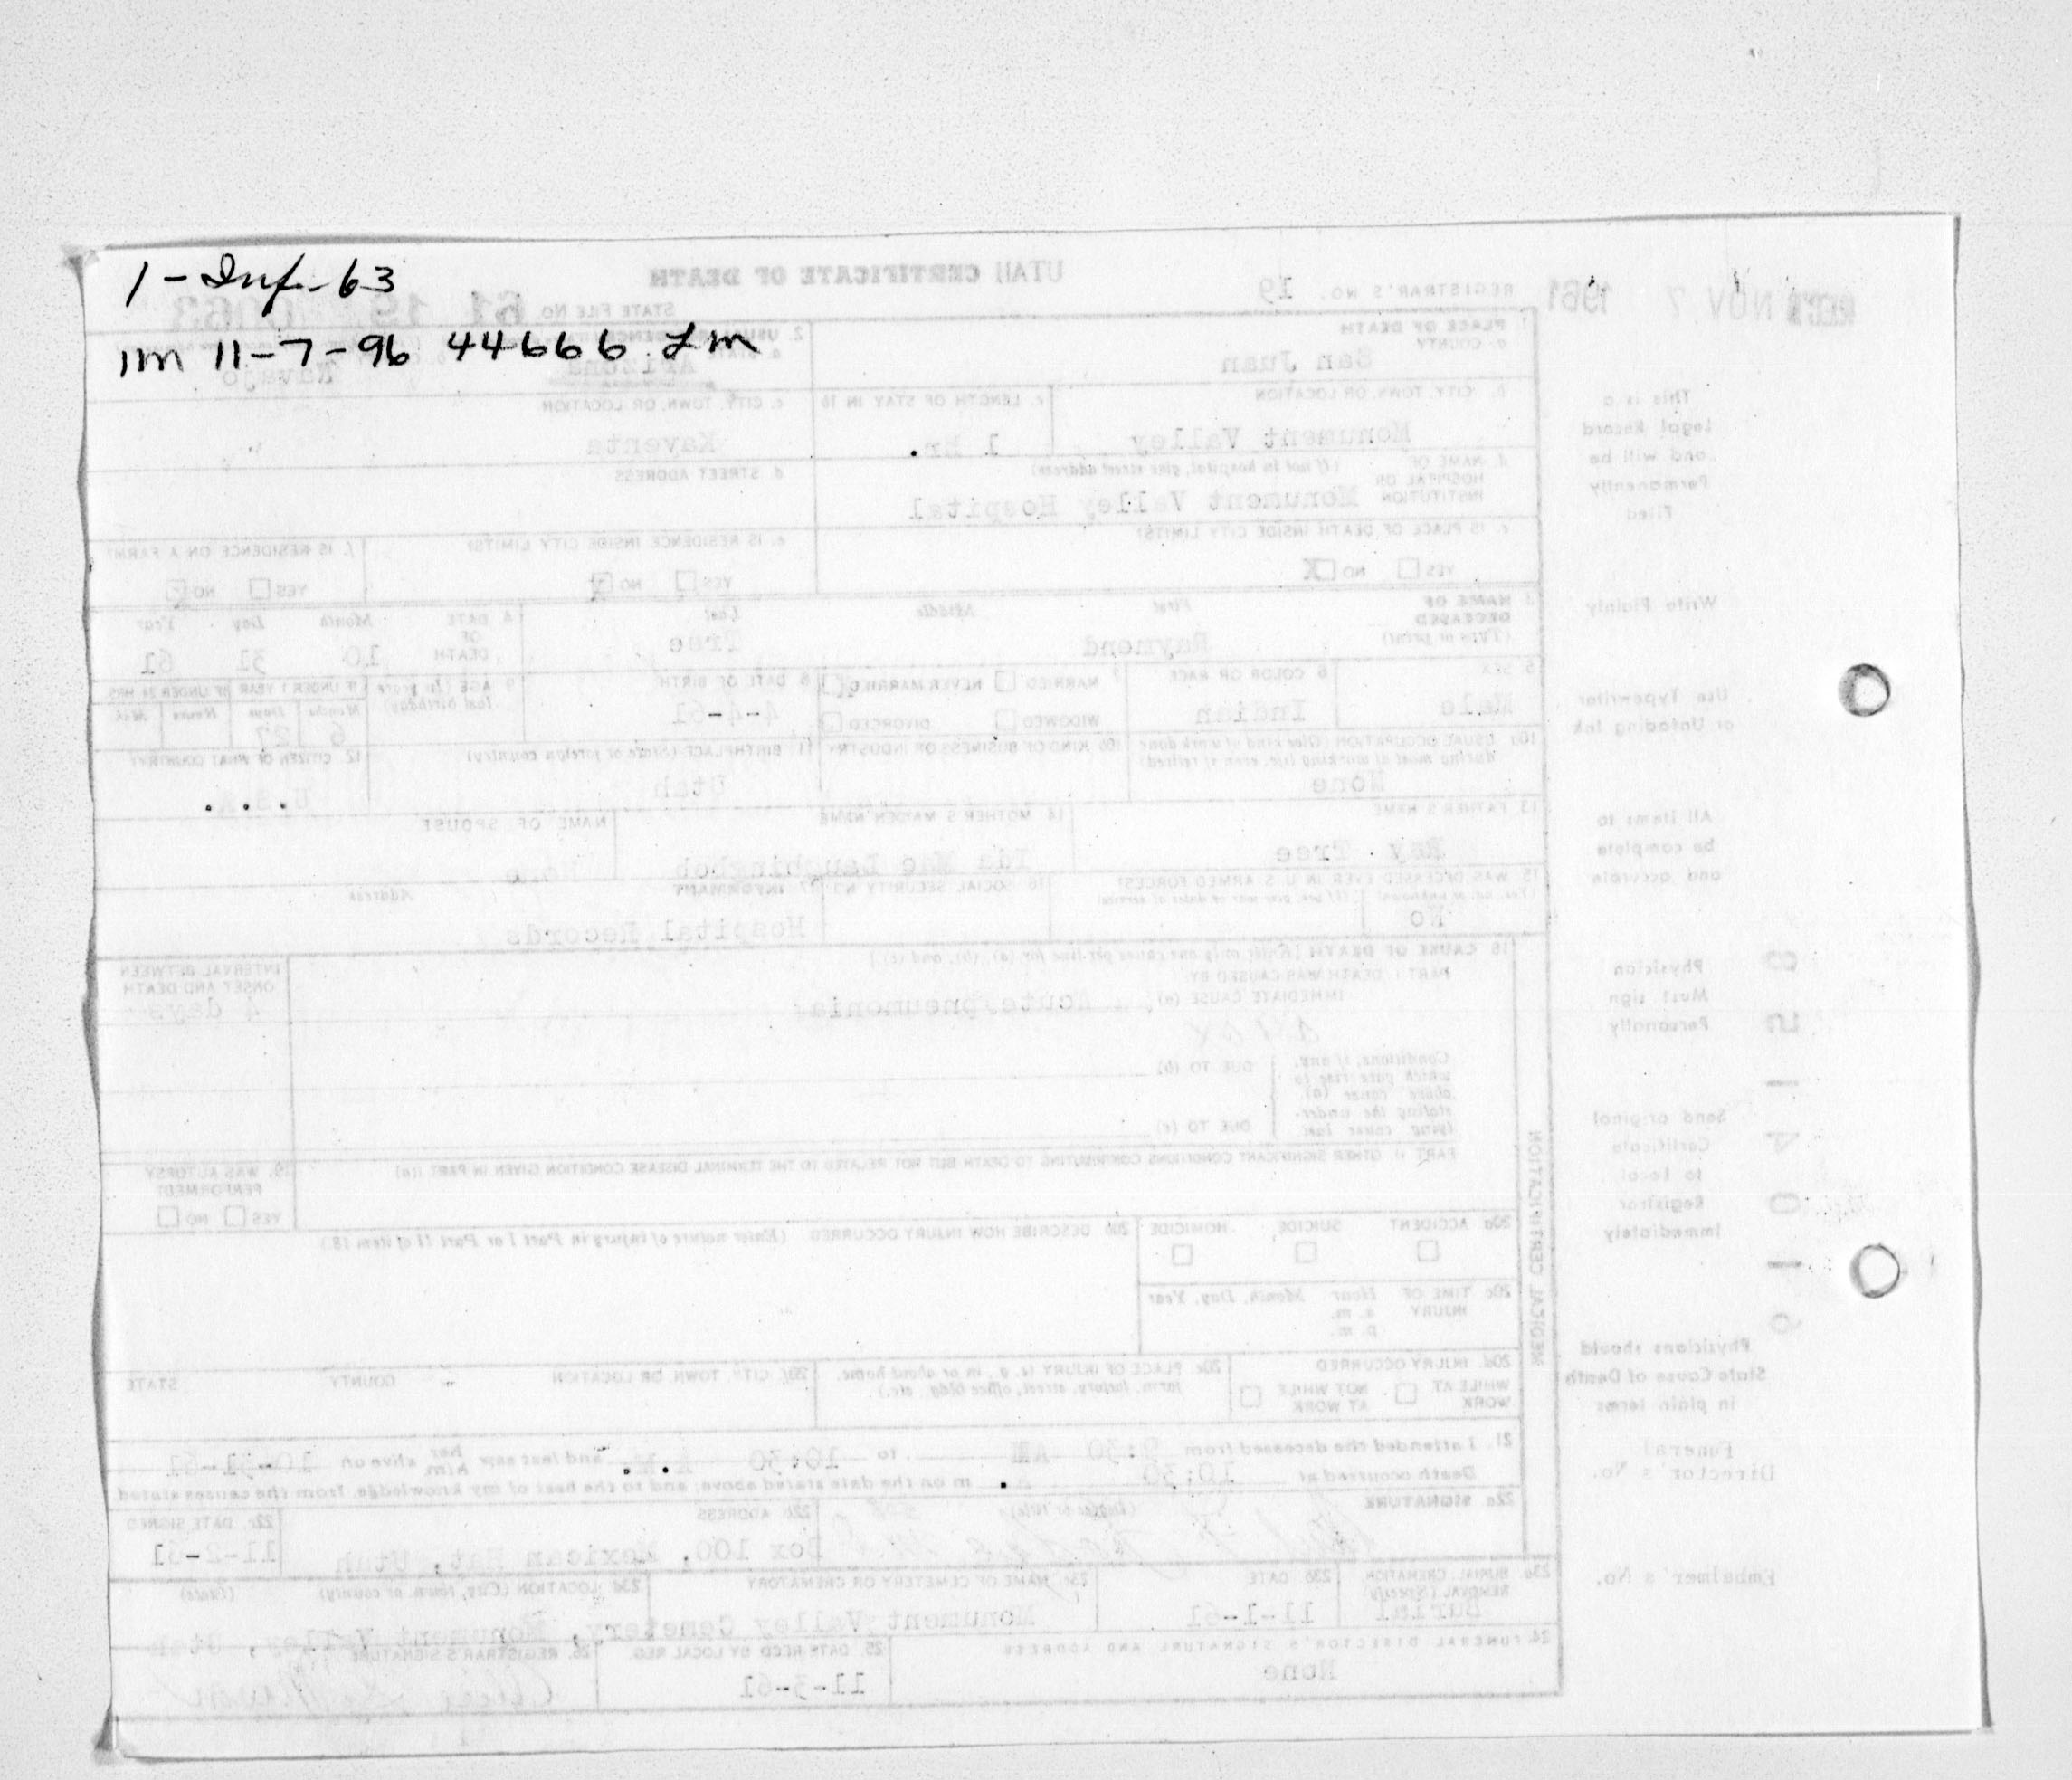 1-Inf-63
1m 11-7-96 44666 Lm
UTAH CERTIFICATE OF DEATH
REGISTRAR'S NO. 19
STATE FILE NO 61 19
REC'D NOV 7 1961
1. PLACE OF DEATH
a. COUNTY
San Juan
2. USUAL RESIDENCE
a. STATE
Arizona
Navajo
b. CITY, TOWN, OR LOCATION
Monument Valley
c. LENGTH OF STAY IN 1b
1 hr.
c. CITY, TOWN, OR LOCATION
Kayenta
"
d. NAME OF HOSPITAL OR INSTITUTION (If not in hospital, give street address)
Monument Valley Hospital
d. STREET ADDRESS
e. IS PLACE OF DEATH INSIDE CITY LIMITS?
YES NO X
e. IS RESIDENCE INSIDE CITY LIMITS?
YES NO X
f. IS RESIDENCE ON A FARM?
YES NO
3. NAME OF DECEASED (Type or print)
First Middle Last
Raymond Tree
4. DATE OF DEATH
Month Day Year
10 31 61
5. SEX
Male
6. COLOR OR RACE
Indian
7. MARRIED NEVER MARRIED
WIDOWED DIVORCED
8. DATE OF BIRTH
4-4-61
9. AGE (In years last birthday)
IF UNDER 1 YEAR IF UNDER 24 HRS.
Months Days Hours Min.
6 27
10a. USUAL OCCUPATION (Give kind of work done during most of working life, even if retired)
None
10b. KIND OF BUSINESS OR INDUSTRY
11. BIRTHPLACE (State or foreign country)
Utah
12. CITIZEN OF WHAT COUNTRY?
U.S.A.
13. FATHER'S NAME
Ray Tree
14. MOTHER'S MAIDEN NAME
Ida Mae
NAME OF SPOUSE
None
15. WAS DECEASED EVER IN U. S. ARMED FORCES?
(Yes, no, or unknown) (If yes, give war or dates of service)
No
16. SOCIAL SECURITY NO.
17. INFORMANT Address
Hospital Records
18. CAUSE OF DEATH [Enter only one cause per line for (a), (b), and (c).]
PART I. DEATH WAS CAUSED BY:
IMMEDIATE CAUSE (a) Acute pneumonia
INTERVAL BETWEEN ONSET AND DEATH
4 days
Conditions, if any, which gave rise to above cause (a), stating the underlying cause last.
DUE TO (b)
DUE TO (c)
PART II. OTHER SIGNIFICANT CONDITIONS CONTRIBUTING TO DEATH BUT NOT RELATED TO THE TERMINAL DISEASE CONDITION GIVEN IN PART I(a)
19. WAS AUTOPSY PERFORMED?
YES NO
20a. ACCIDENT SUICIDE HOMICIDE
20b. DESCRIBE HOW INJURY OCCURRED (Enter nature of injury in Part I or Part II of item 18.)
20c. TIME OF INJURY
Hour Month, Day, Year
a. m.
p. m.
20d. INJURY OCCURRED
WHILE AT WORK NOT WHILE AT WORK
20e. PLACE OF INJURY (e. g., in or about home, farm, factory, street, office bldg., etc.)
20f. CITY, TOWN, OR LOCATION COUNTY STATE
21. I attended the deceased from 9:30 AM to 10:30 A.M. and last saw her him alive on 10-31-61
Death occurred at 10:30 A. m on the date stated above; and to the best of my knowledge, from the causes stated.
22a. SIGNATURE (Degree or title)
22b. ADDRESS
Box 100, Mexican Hat, Utah
22c. DATE SIGNED
11-2-61
23a. BURIAL, CREMATION, REMOVAL (Specify)
Burial
23b. DATE
11-1-61
23c. NAME OF CEMETERY OR CREMATORY
Monument Valley Cemetery,
23d. LOCATION (City, town, or county) (State)
Monument Valley, Utah
24. FUNERAL DIRECTOR'S SIGNATURE AND ADDRESS
None
25. DATE REC'D BY LOCAL REG.
11-3-61
26. REGISTRAR'S SIGNATURE
MEDICAL CERTIFICATION
This is a
Legal Record
and will be
Permanently
Filed
Write Plainly
Use Typewriter
or Unfading Ink
All items to
be complete
and accurate
Physician
Must sign
Personally
Send original
Certificate
to Local
Registrar
Immediately
Physicians should
State Cause of Death
in plain terms
Funeral
Director's No.
Embalmer's No.